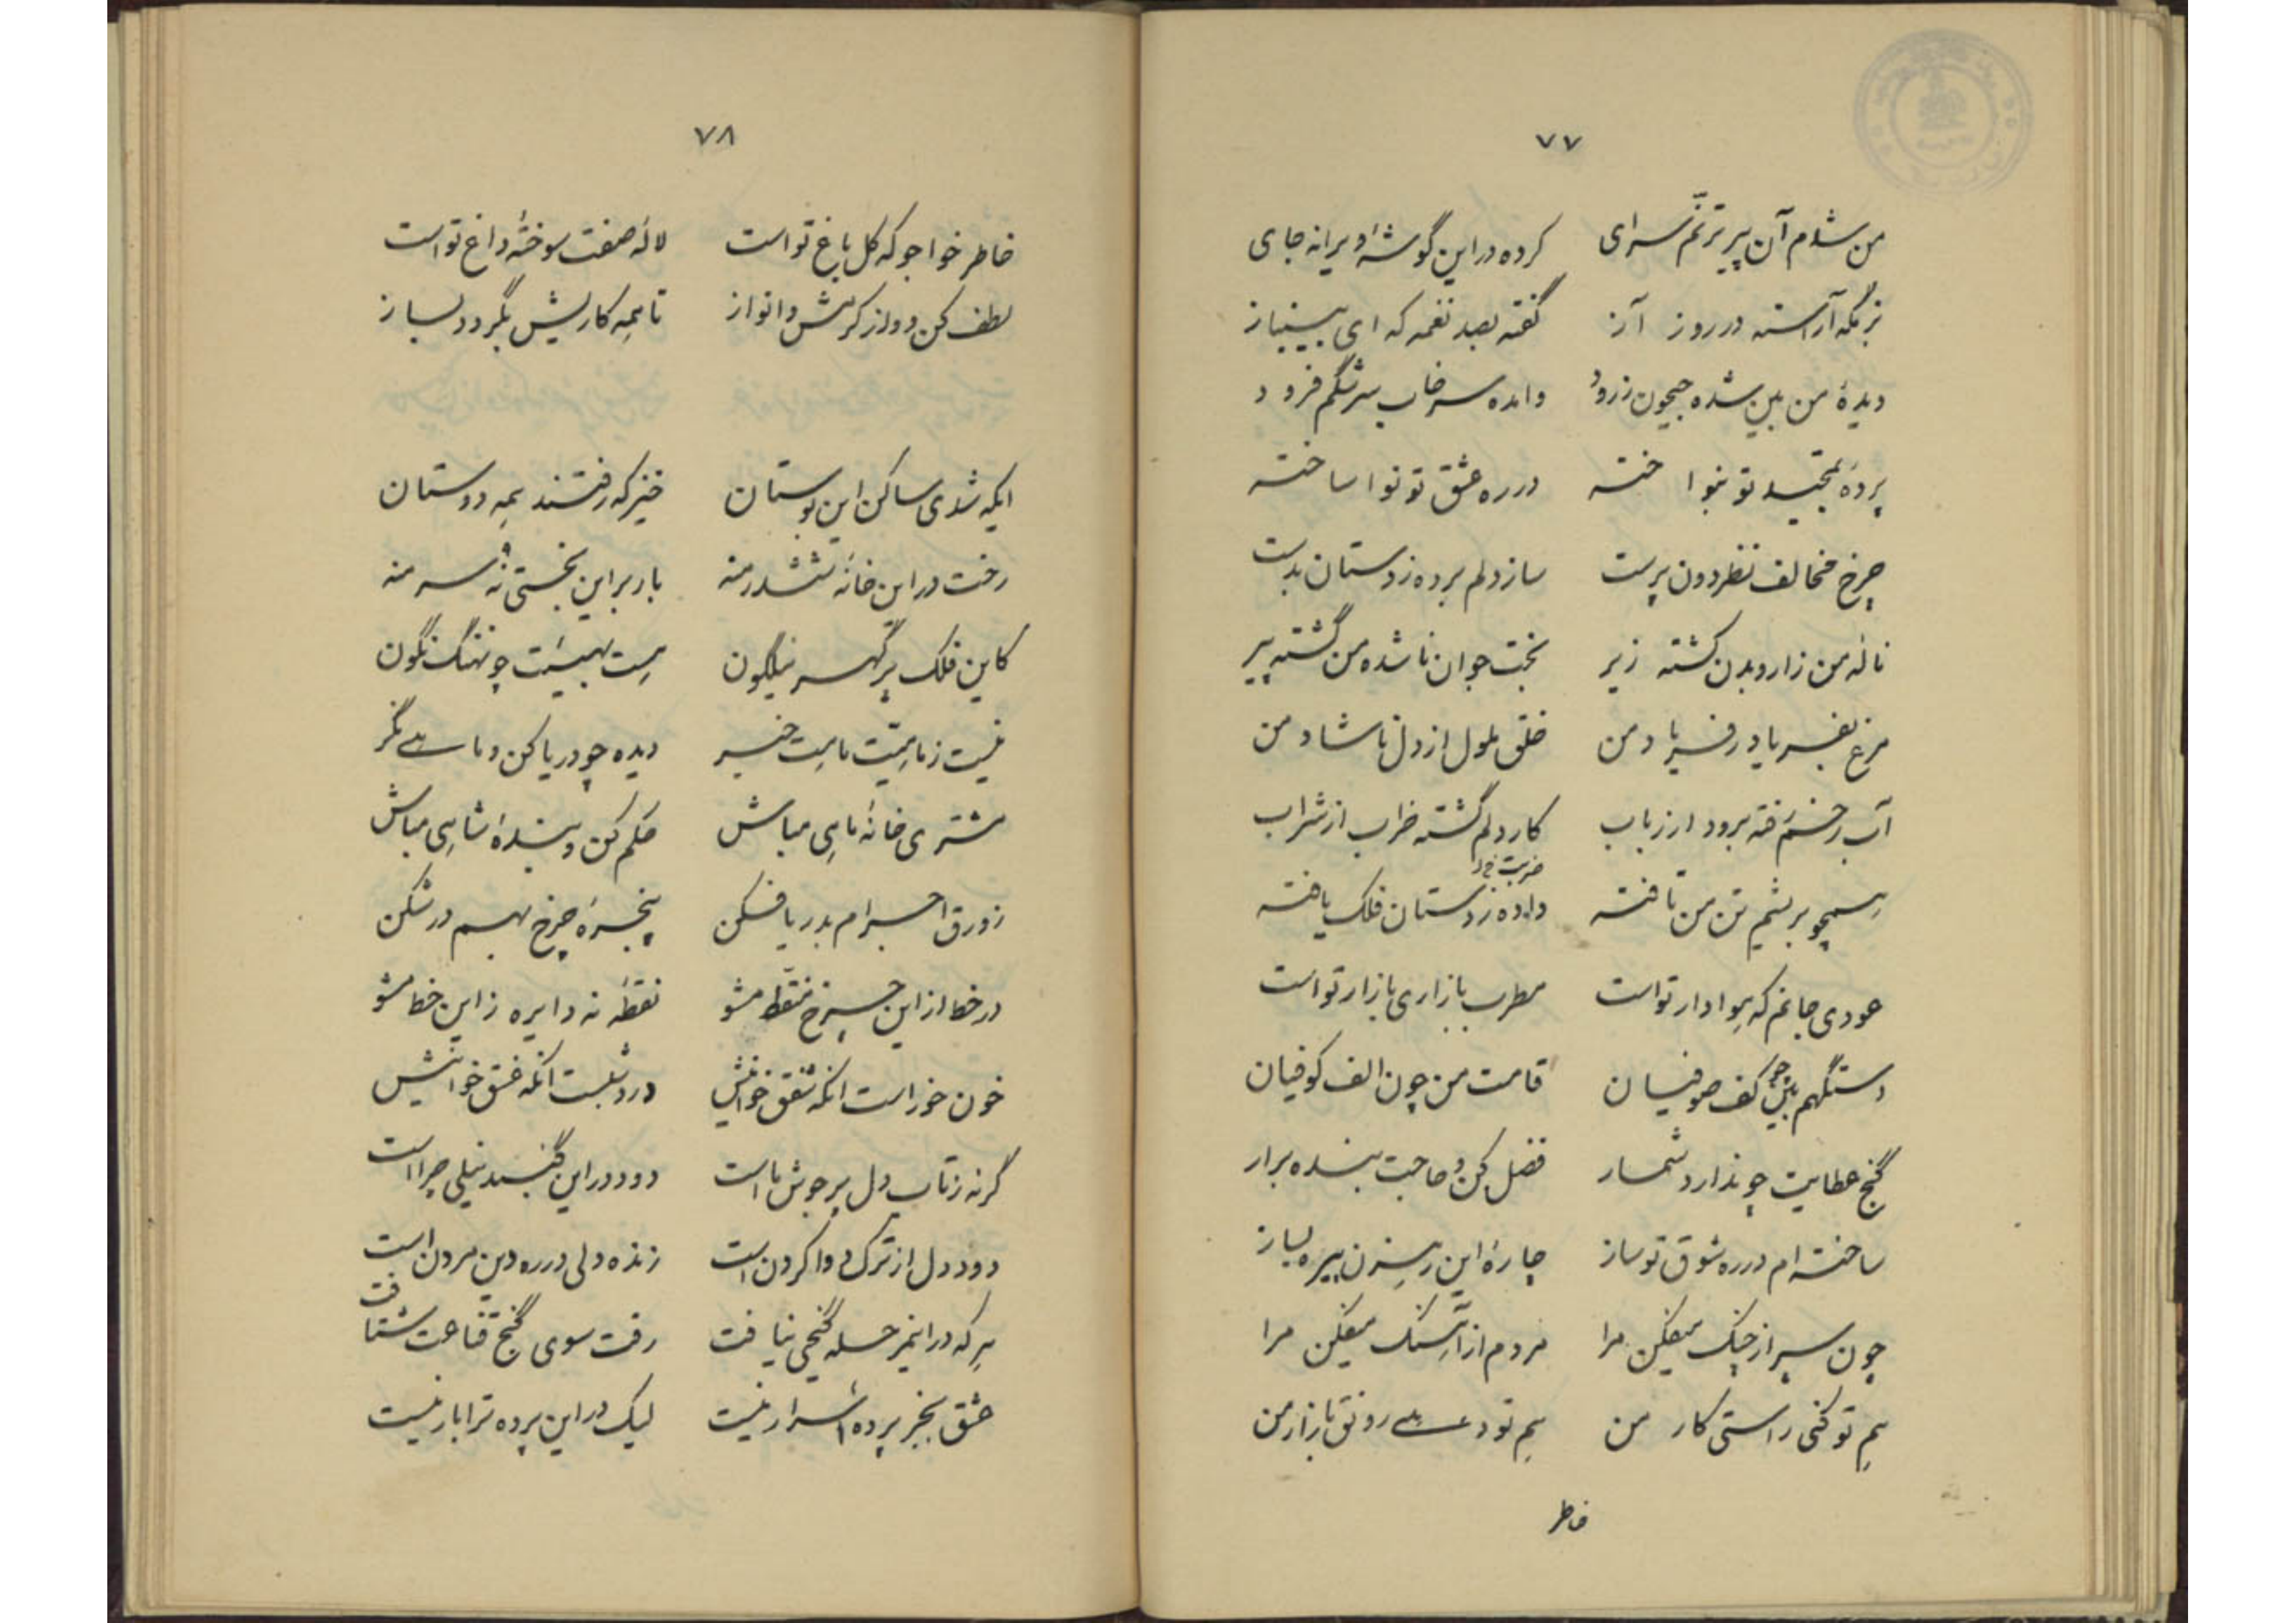 ۷۷
من شدم آن پیر ترنّم سرای کرده در این گوشهٔ ویرانه جای
بزمگه آراسته در روز آز گفته بصد نغمه که ای بینیاز
دیدهٔ من بین شده جیحون ز رود داده سرخاب سرشگم فرود
پردهٔ تمجید تو بنواخته در ره عشق تو نوا ساخته
چرخ مخالف نظر دون پرست ساز دلم برده ز دستان بدست
نالهٔ من زار و بدن گشته زیر بخت جوان ناشده من گشته پیر
مرغ بفریاد ز فریاد من خلق ملول از دل ناشاد من
آب رخم رفته برود از رباب کار دلم گشته خراب از شراب
همچو بریشم تن من تافته داده ز دستان فلک یافته
ضربت خود
عودی جانم که هوادار تو است مطرب بازاری بازار تو است
دستگهم بین چو کف صوفیان قامت من چون الف کوفیان
گنج عطایت چو ندارد شمار فضل کن و حاجت بنده برار
ساخته‌ام در ره شوق تو ساز چارهٔ این رهزن پیره بساز
چون سپر از چنگ میفکن مرا مردم از آهنگ میفکن مرا
هم تو کنی راستی کار من هم تو دهی رونق بازار من
خاطر
۷۸
خاطر خواجو که گل باغ تو است لاله صفت سوختهٔ داغ تو است
لطف کن و از کرمش وانواز تا همه کاریش بگردد بساز
ایکه شدی ساکن این بوستان خیز که رفتند همه دوستان
رخت در این خانهٔ ششدر منه بار بر این بختی نه سر منه
کاین فلک پر گهر نیلگون هست بهیئت چو نهنگ نگون
نیست ز ماهیّت ماهیت خبر دیده چو دریا کن و ماهی نگر
مشتری خانهٔ ماهی مباش حکم کن و بندهٔ شاهی مباش
زورق اجرام بدریا فکن پنجرهٔ چرخ بهم در شکن
در خط از این چرخ منقّط مشو نقطه نه دایره زاین خط مشو
خون خور است آنکه شفق خوانیش درد شبست آنکه غسق خوانیش
گرنه ز تاب دل پر جوش ما است دود در این گنبد نیلی چرا است
دود دل از ترک دوا کردن است زنده دلی در ره دین مردن است
هر که در اینمرحله گنجی نیافت رفت سوی گنج قناعت شتافت
عشق بجز پرده اسرار نیست لیک در این پرده ترا بار نیست